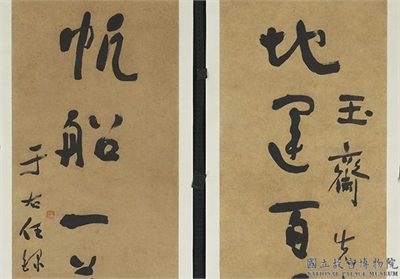 玉齋先
地運百
帆船一
于右任
國立故宮博物院
NATIONAL PALACE MUSEUM